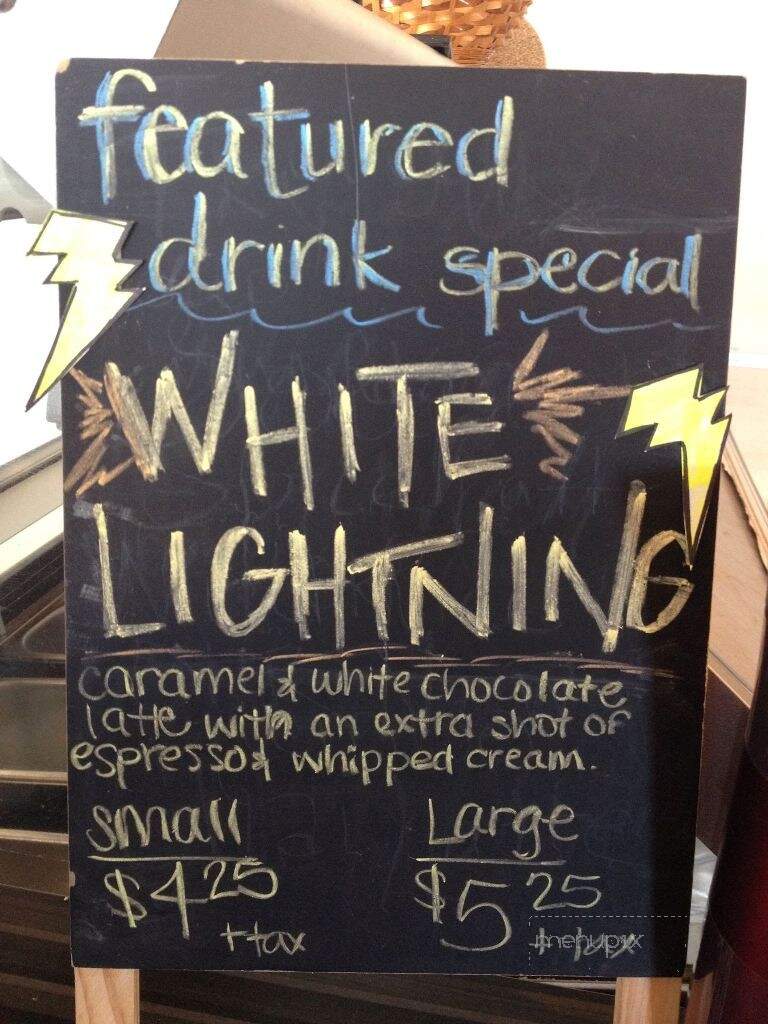 featured
drink special
WHITE
LIGHTNING
caramel & white chocolate
latte with an extra shot of
espresso & whipped cream.
small Large
$4.25 $5.25
+tax +tax
menupix